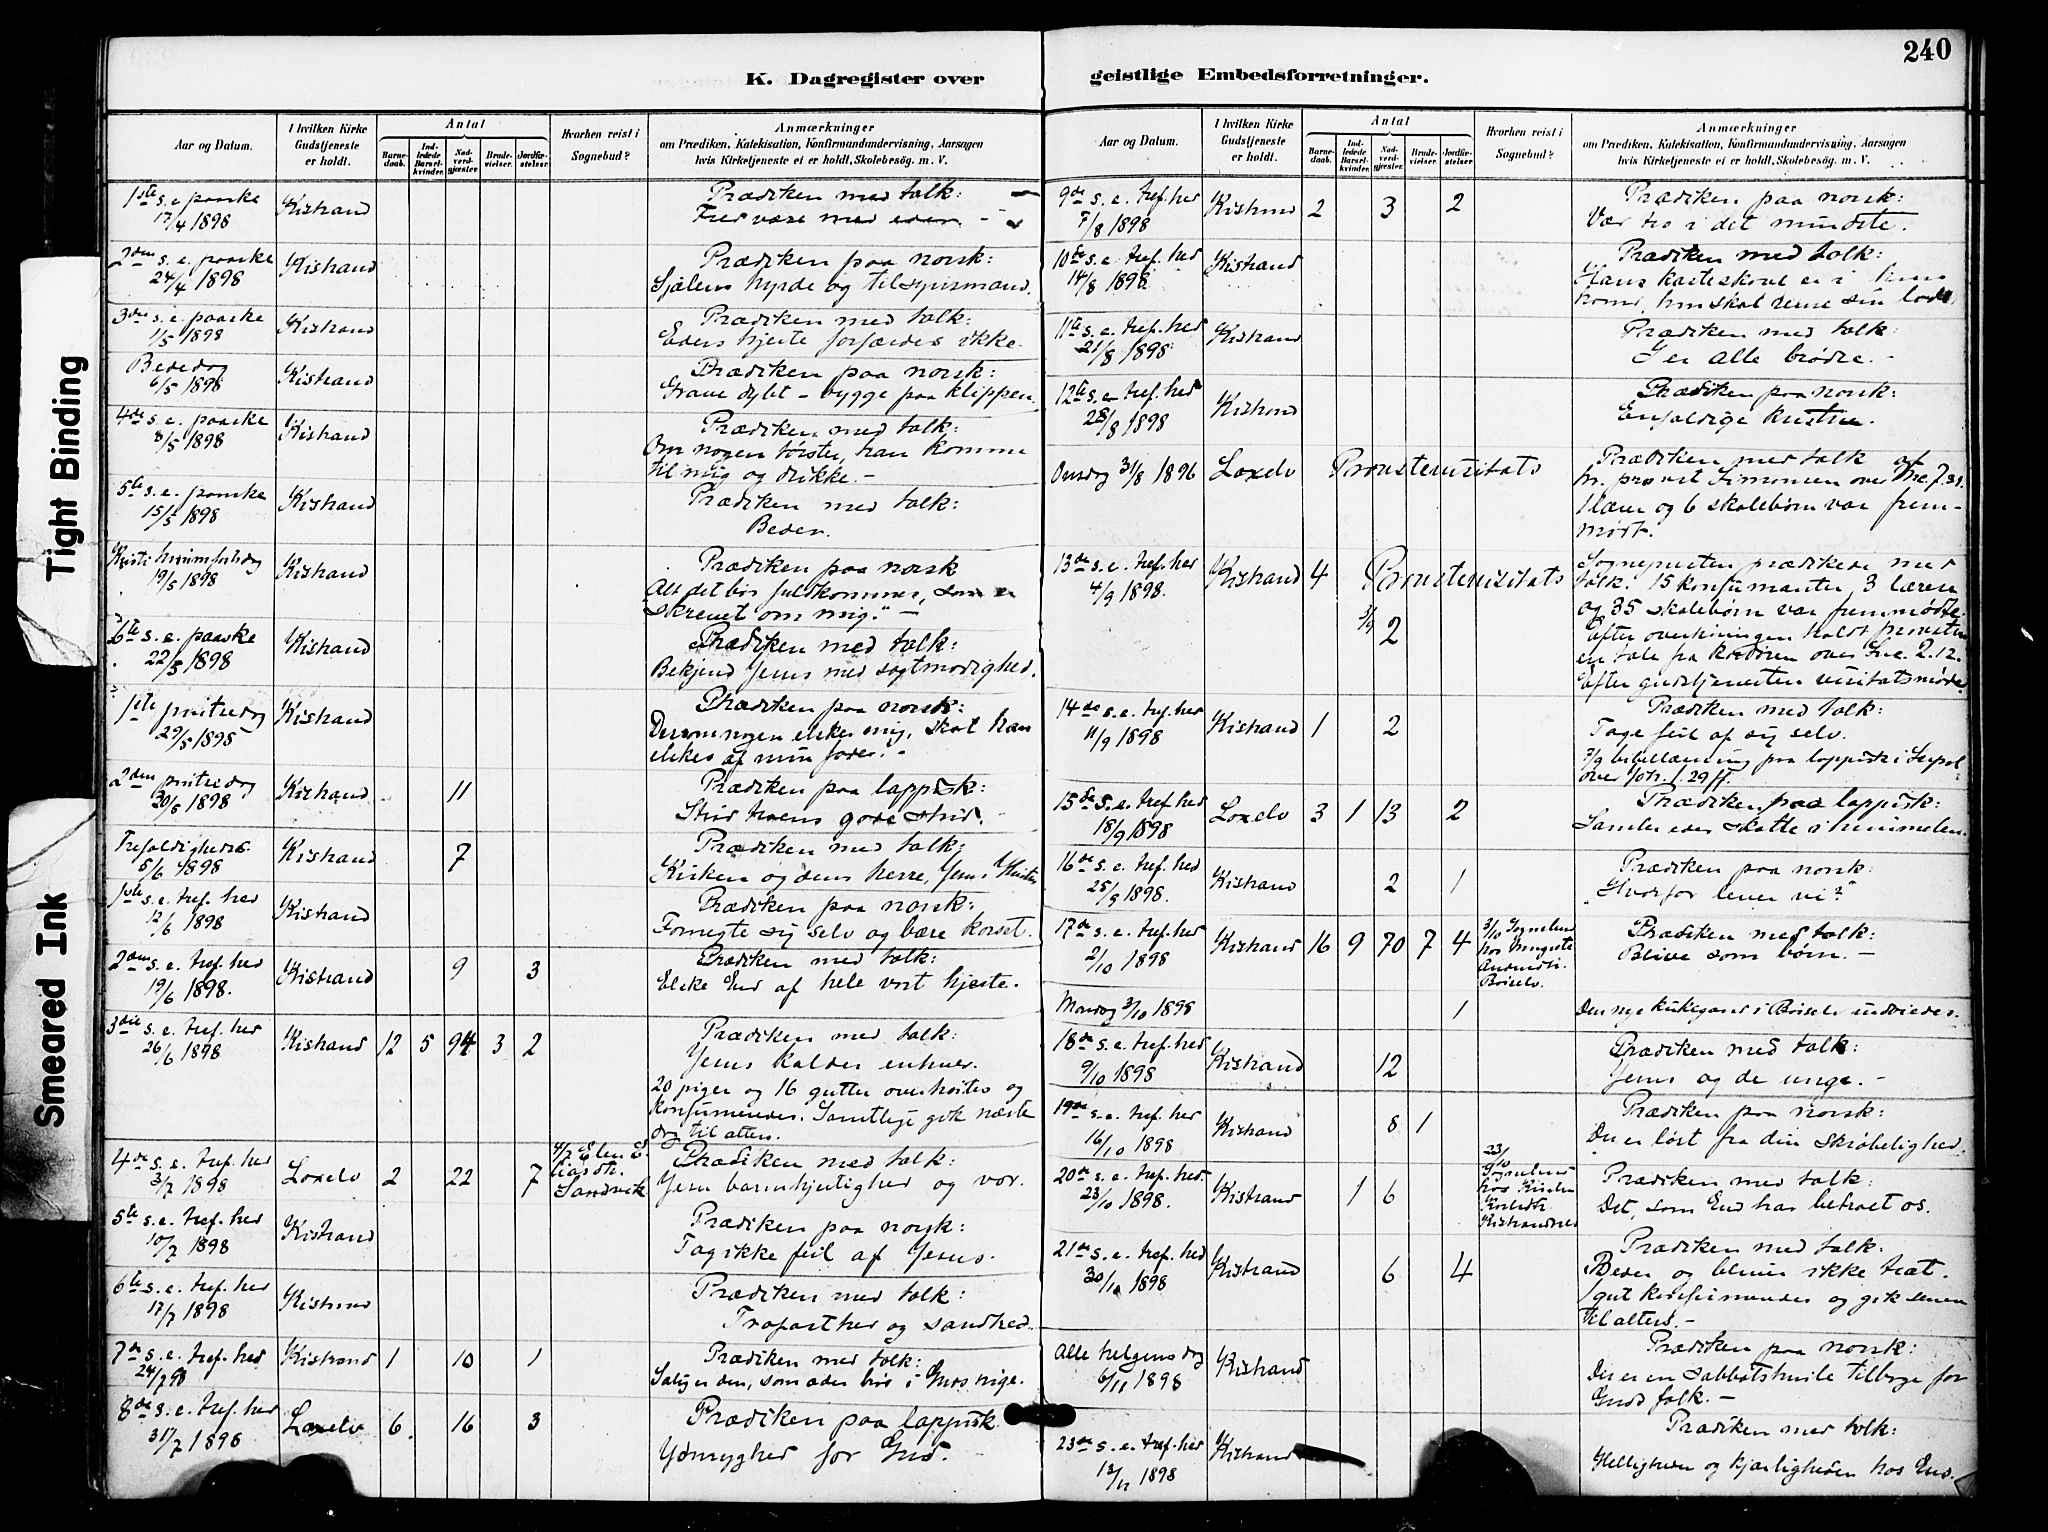 240
K. Dagregister over
geistlige Embedsforretninger.
Tight Binding
Smeared Ink
Aar og Datum.
I hvilken Kirke Gudstjeneste er holdt.
Antal
Barnedaab.
Indledede Barselkvinder.
Nadverdgjæster.
Brudevielser.
Jordfæstelser.
Hvorhen reist i Sognebud?
Anmærkninger
om Prædiken, Katekisation, Konfirmandundervisning, Aarsagen
hvis Kirketjeneste ei er holdt, Skolebesøg. m. V.
1ste s. e. paaske Kistrand Prædiken med tolk:
17/4 1898 Fred være med eder. -
2den s. e. paaske Kistrand Prædiken paa norsk:
24/4 1898 Sjælens hyrde og tilsynsmand.
3die s. e. paaske Kistrand Prædiken med tolk:
1/5 1898 Eders hjerte forfærdes ikke.
Bededag Kistrand Prædiken paa norsk:
6/5 1898 Grave dybt - bygge paa klippen.
4de s. e. paaske Kistrand Prædiken med tolk:
8/5 1898 Om nogen tørster, han komme
til mig og drikke. -
5te s. e. paaske Kistrand Prædiken med tolk:
15/5 1898 Beder.
Kristi himmelfartsdag Kistrand Prædiken paa norsk
19/5 1898 Alt det bør fuldkommes, som er
skrevet om mig." -
6te s. e. paaske Kistrand Prædiken med tolk:
22/5 1898 Bekjend Jesus med sagtmodighed.
1ste pintsedag Kistrand Prædiken paa norsk:
29/5 1898 Dersom nogen elsker mig, skal han
elskes af min fader. -
2den pintsedag Kistrand 11 Prædiken paa lappisk:
30/5 1898 Strid troens gode strid. -
Trefoldigheds Kistrand 7 Prædiken med tolk:
5/6 1898 Kirken og dens herre, Jesus Kristus
1ste s. e. tref. hed Kistrand Prædiken paa norsk:
12/6 1898 Fornegte sig selv og bære korset.
2den s. e. tref. hed Kistrand 9 3 Prædiken med tolk:
19/6 1898. Elske Gud af hele vort hjerte.
3die s. e. tref. hed Kistrand 12 5 94 3 2 Prædiken med tolk:
26/6 1898 Jesus kalder enhver.
20 piger og 16 gutter overhørtes og
konfirmeredes. Samtlige gik næste
dag til alters.
4de s. e. tref. hed Loxelv 2 22 7 4/7 Elen Sandvik Prædiken med tolk:
3/7 1898 Jesu barmhjertighed og vor.
5te s. e. tref. hed Kistrand Prædiken paa norsk:
10/7 1898 Tag ikke feil af Jesus.
6te s. e. tref. hed Kistrand Prædiken med tolk:
17/7 1898 Trofasthed og sandhed.
7de s. e. tref. hed Kistrand 1 10 1 Prædiken med tolk:
24/7 98 Salig er den, som æder brød i Guds rige.
8de s. e. tref. hed Loxelv 6 16 3 Prædiken paa lappisk
31/7 1898 Ydmyghed for Gud.
Aar og Datum.
I hvilken Kirke Gudstjeneste er holdt.
Antal
Barnedaab.
Indledede Barselkvinder.
Nadverdgjæster.
Brudevielser.
Jordfæstelser.
Hvorhen reist i Sognebud?
Anmærkninger
om Prædiken, Katekisation, Konfirmandundervisning, Aarsagen
hvis Kirketjeneste ei er holdt, Skolebesøg. m. V.
9de s. e. tref. hed Kistrand 2 3 2 Prædiken paa norsk:
7/8 1898 Vær tro i det mindste.
10de s. e. tref. hed Kistrand Prædiken med tolk:
14/8 1898 Hans kasteskovl er i hans
haand, han skal rense sin lo
11te s. e. tref. hed Kistrand Prædiken med tolk:
21/8 1898 I er alle brødre. -
12te s. e. tref. hed Kistrand Prædiken paa norsk:
28/8 1898 Enfoldige kristne.
Onsdag 31/8 1896 Loxelv Provstevisitats Prædiken med tolk af
hr. provst Simonsen over Mrc. 7.31.
1 lærer og 6 skolebørn var frem-
mødt.
13de s. e. tref. hed Kistrand 4 Provstevisitats Sognepresten prædikede med
4/9 1898. tolk. 15 konfirmanter, 3 lærere
og 35 skolebørn var fremmødte.
3/9 2 Efter overhøringen holdt provsten
en tale fra kordøren over Luc. 2.12.
Efter gudstjenesten visitatsmøde.
14de s. e. tref. hed Kistrand 1 2 Prædiken med tolk:
11/9 1898 Tage feil af sig selv.
7/9 bibellæsning paa lappisk i
over Joh. 1. 29 ff.
15de s. e. tref. hed Loxelv 3 1 13 2 Prædiken paa lappisk:
18/9 1898 Samler eder skatte i himmelen.
16de s. e. tref. hed Kistrand 2 1 Prædiken paa norsk:
25/9 1898. "Hvorfor lever vi?"
17de s. e. tref. hed Kistrand 16 9 70 7 4 3/10 hos Børselv. Prædiken med tolk:
2/10 1898 Blive som børn. -
Mandag 3/10 1898 1 Den nye kirkegaard i Børselv indviedes.
18de s. e. tref. hed Kistrand 12 Prædiken med tolk:
9/10 1898 Jesus og de unge. -
19de s. e. tref. hed Kistrand 8 1 Prædiken paa norsk:
16/10 1898 Du er løst fra din skrøbelighed.
20de s. e. tref. hed. Kistrand 1 6 23/10 hos Prædiken med tolk:
23/10 1898. Det, som Gud har betroet os.
21de s. e. tref. hed Kistrand 6 4 Prædiken med tolk:
30/10 1898 Beder og bliver ikke træt.
1 gut konfirmeredes og gik senere
til alters. -
Alle helgens dag Kistrand Prædiken paa norsk:
6/11 1898 Der er en sabbatshvile tilbage for
Guds folk. -
23de s. e. tref. hed Kistrand Prædiken med tolk:
13/11 1898 Helligheden og kjærligheden hos Gud.